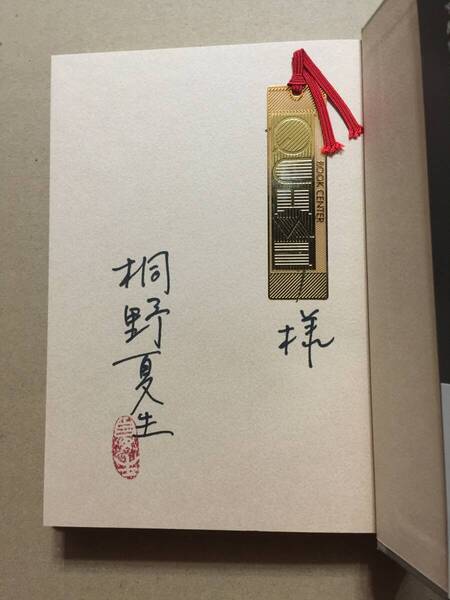 BOOK CENTER
様
桐野夏生